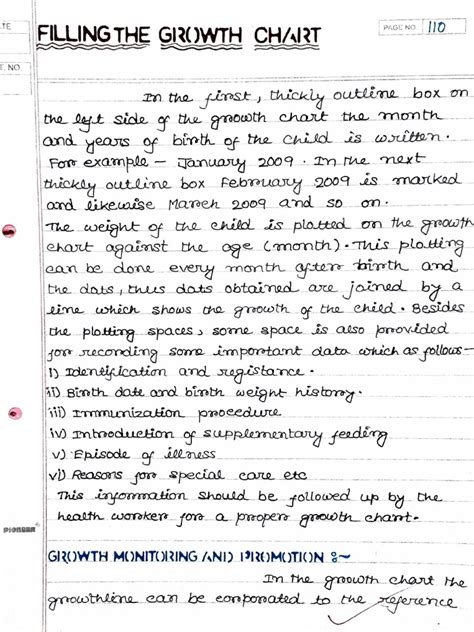 TE
PAGE NO. 110
FILLING THE GROWTH CHART
E. NO.
In the first, thickly outline box on
the left side of the growth chart the month
and years of birth of the child is written.
For example - January 2009. In the next
thickly outline box February 2009 is marked
and likewise March 2009 and so on.
The weight of the child is plotted on the growth
chart against the age (month). This plotting
can be done every month after birth and
the dats, thus dats obtained are joined by a
line which shows the growth of the child. Besides
the plotting spaces, some space is also provided
for recording some important data which as follows-
i) Identification and registance.
ii) Birth date and birth weight history.
iii) Immunization procedure
iv) Introduction of supplementary feeding
v) Episode of illness
vi) Reasons for special care etc
This information should be followed up by the
health worker for a proper growth chart.
PIONEER
GROWTH MONITORING AND PROMOTION :~
In the growth chart the
growthline can be conporated to the reference